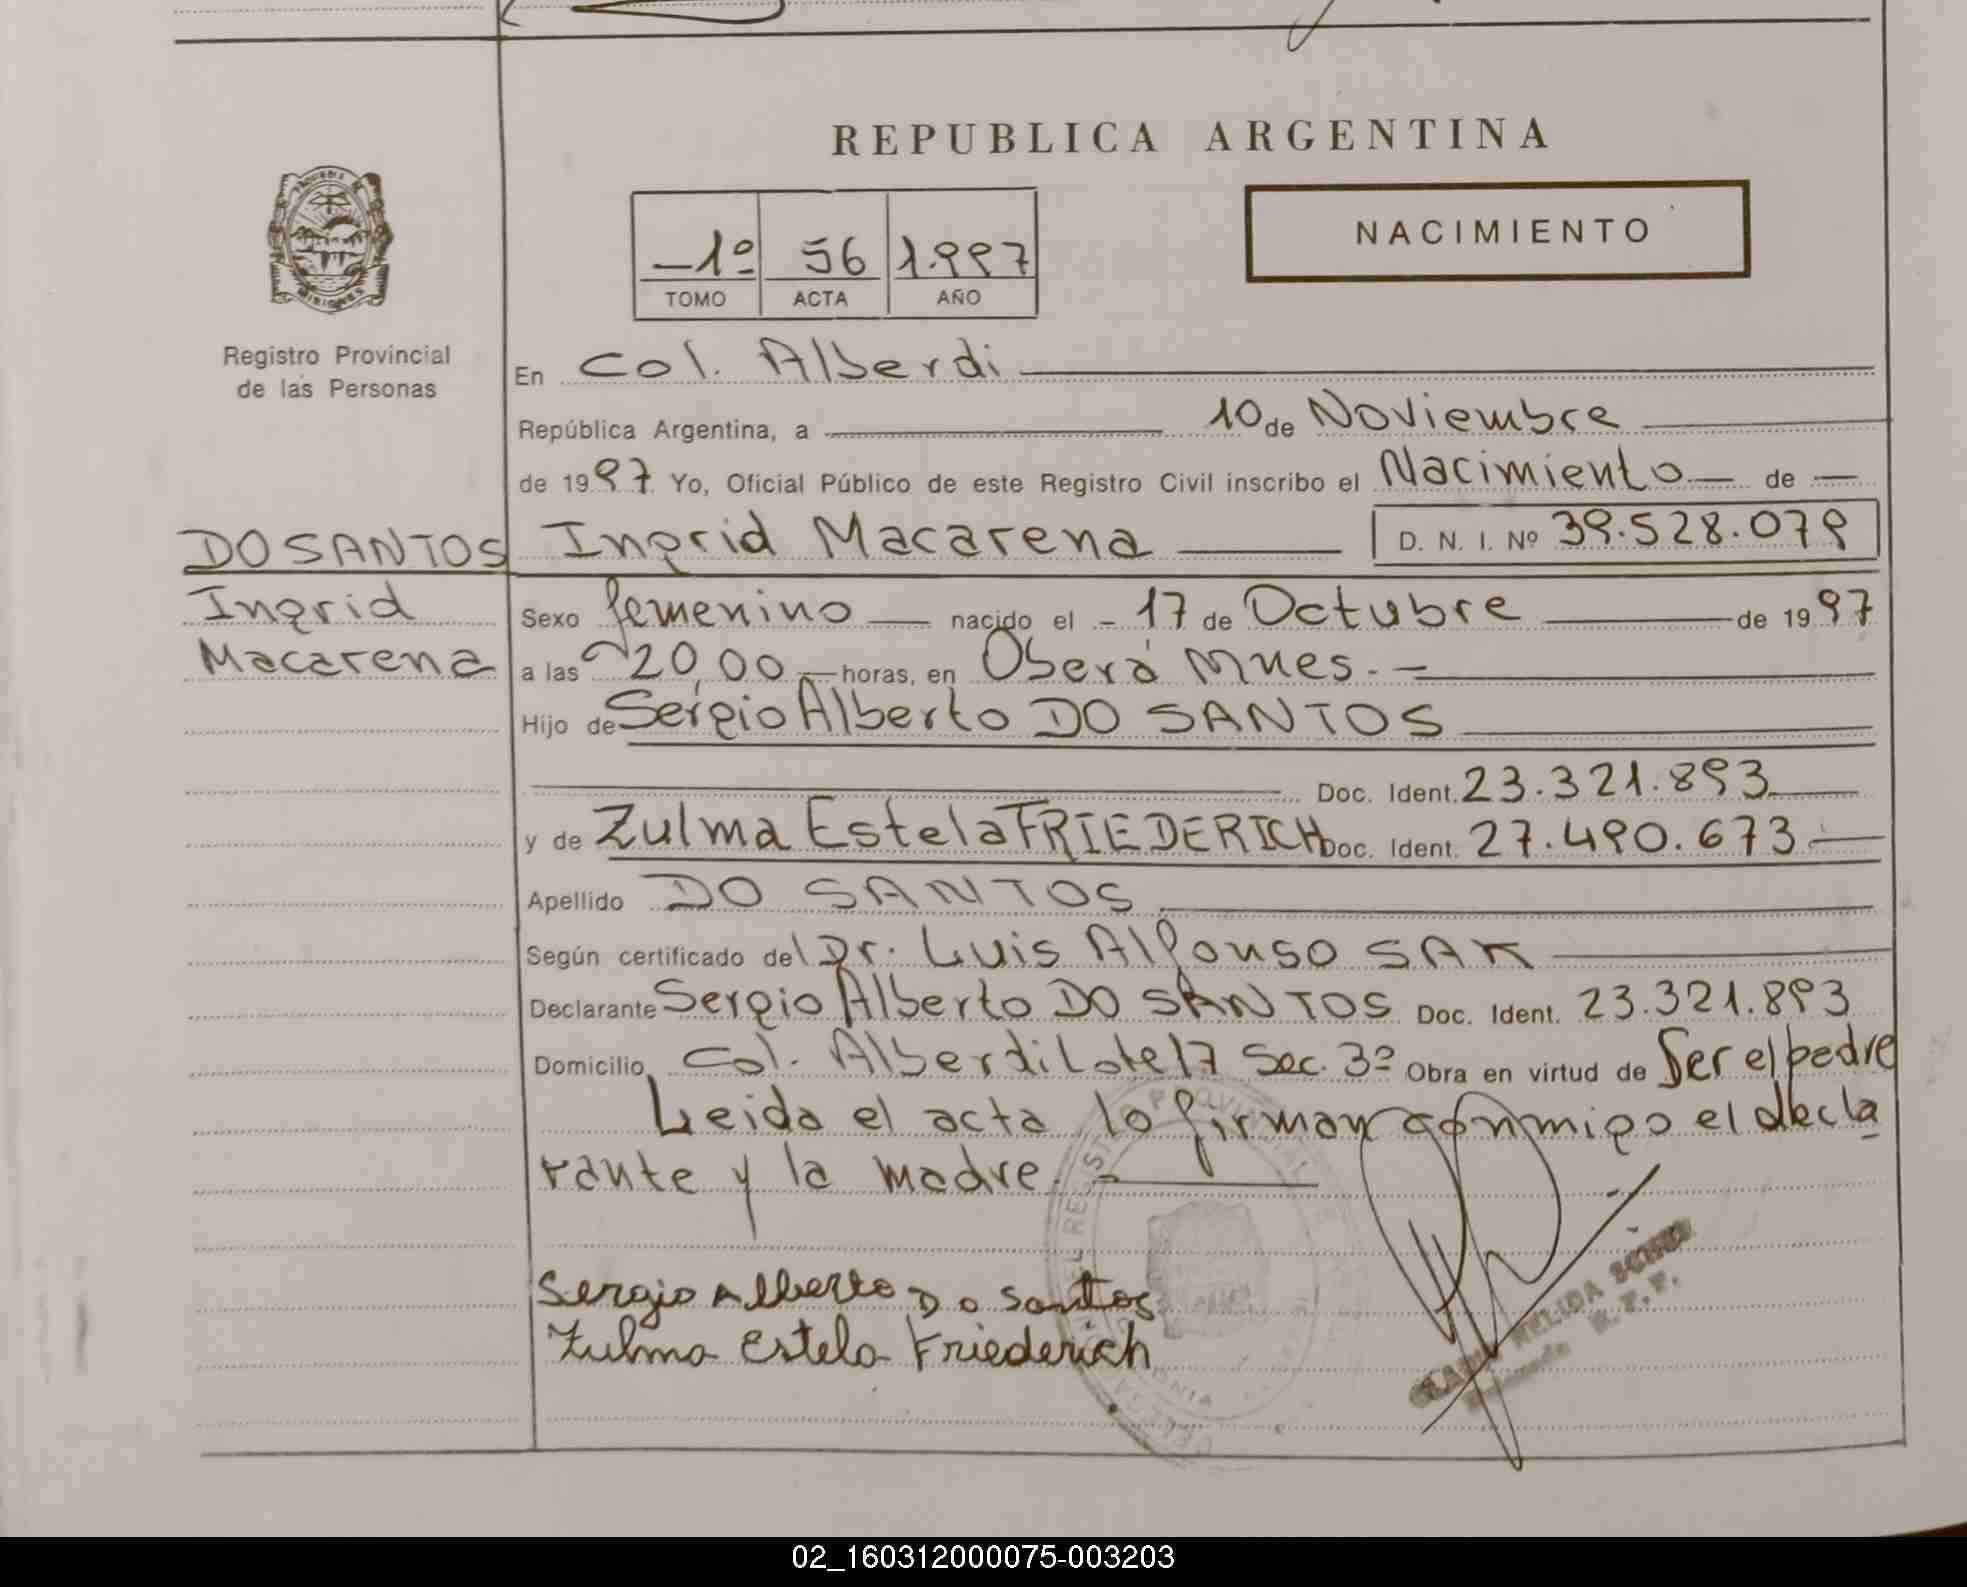 REPUBLICA ARGENTINA
NACIMIENTO
-1º 56 1.997
TOMO ACTA AÑO
Registro Provincial
de las Personas
En Col. Alberdi
República Argentina, a 10 de Noviembre
de 1997 Yo, Oficial Público de este Registro Civil inscribo el Nacimiento de
DO SANTOS Ingrid Macarena D. N. I. Nº 39.528.079
Ingrid
Macarena
Sexo femenino nacido el - 17 de Octubre de 1997
a las 20,00 horas, en Oberá Mnes. -
Hijo de Sergio Alberto DO SANTOS
Doc. Ident. 23.321.893
y de Zulma Estela FRIEDERICH Doc. Ident. 27.490.673
Apellido DO SANTOS
Según certificado del Dr. Luis Alfonso SAK
Declarante Sergio Alberto DO SANTOS Doc. Ident. 23.321.893
Domicilio Col. Alberdi Lote 17 Sec. 3ª Obra en virtud de Ser el padre
Leida el acta lo firman conmigo el decla
rante y la madre. -
Sergio Alberto Do Santos
Zulma Estela Friederich
NELIDA
02_160312000075-003203